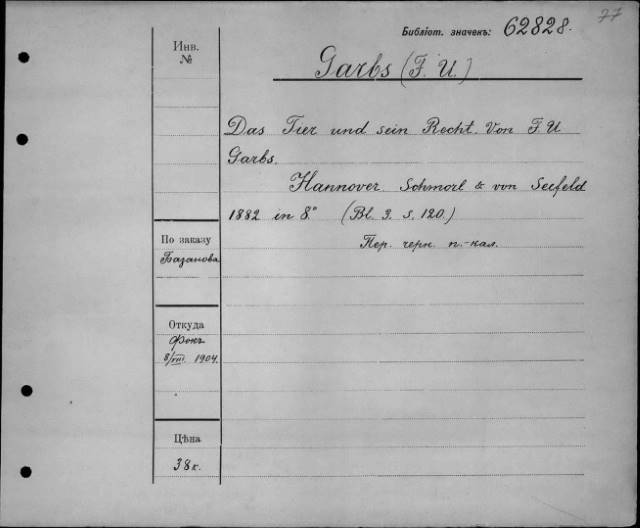 77
Библіот. значекъ: 62828.
Инв.
№
Garbs (F. U.)
Das Tier und sein Recht. Von F. U
Garbs.
Hannover. Schmorl & von Seefeld
1882 in 8° (Bl. 3. s. 120.)
Пер. черн. п.-кал.
По заказу
Базанова
Откуда
Фокъ
8/VIII 1904.
Цѣна
38 к.